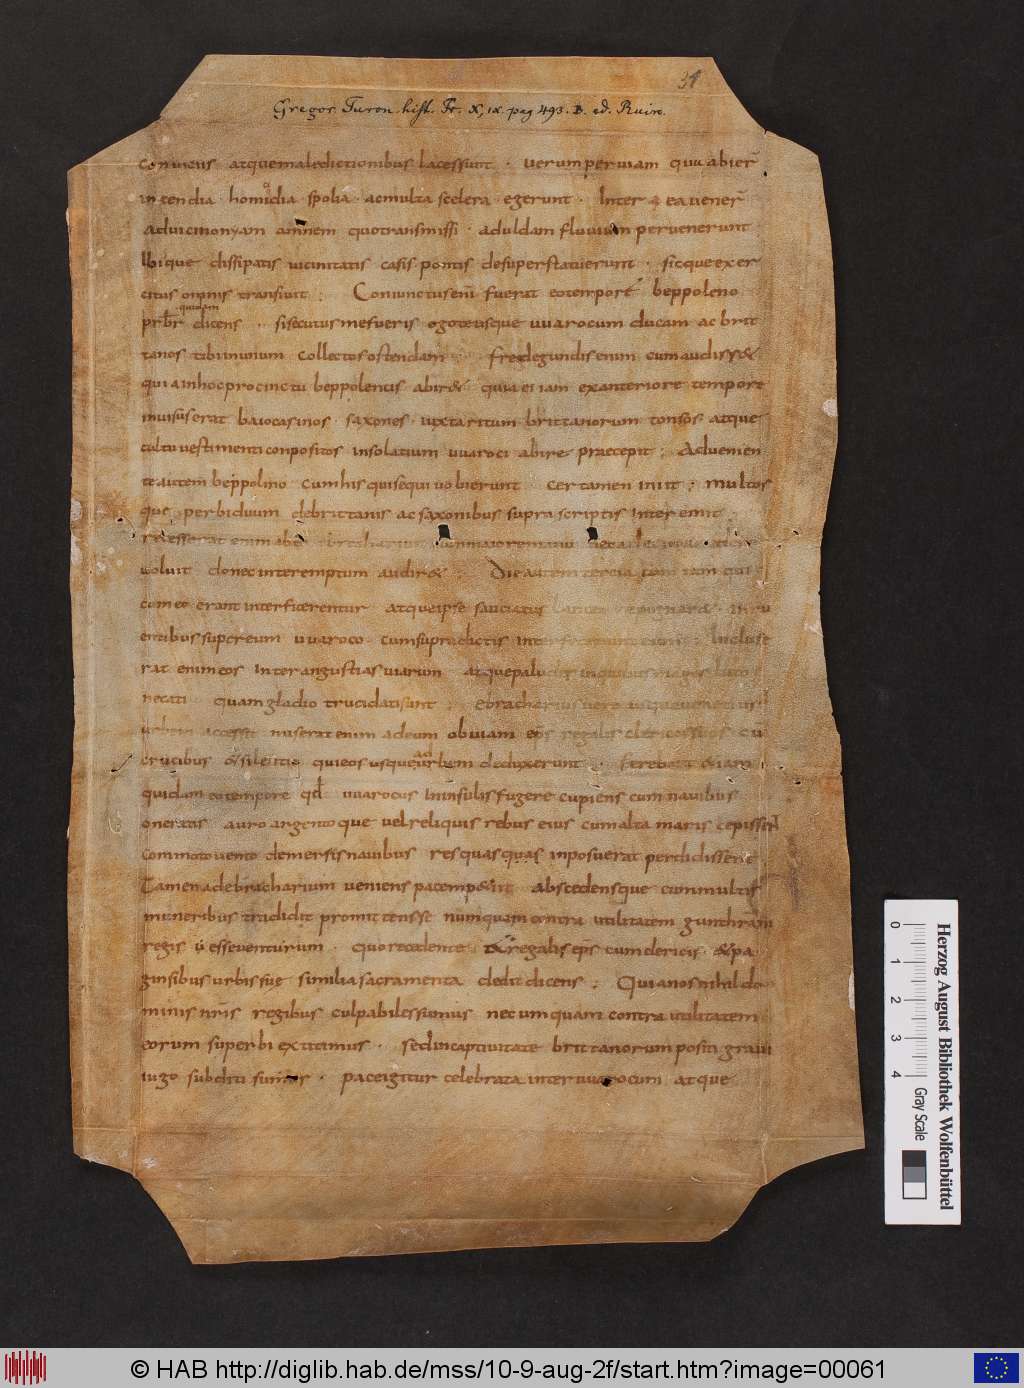 34
Gregor. Turon. hist. Fr. X, IX. pag 493. B. ed. Ruin.
conuiciis atquemaledictionibus lacessiunt · uerumperuiam quu abier̄
incendia homicidia spolia · acmulta scelera · egerunt · Inter ea uener̄
aduicinonyam amnem quotransmissi · aduldam fluuium peruenerunt
Ibique dissipatis uicinitatis casis pontis desuperstatuerunt · sicqueexer
citus omnis transiuit : Coniunctusem̄ fuerat eotempore beppoleno
quidam
prb̄r dicens · sisecutusmefueris egoteusque uuarocum ducam ac brit
tanos tibiinunum collectosostendam fredegundisenim cumaudiss&
quiainhocprocinctu beppolenus abir& quiaeiiam exanteriore tempore
inuisuserat baiocasinos · saxones · iuxtaritum brittanorum tonsos atque
cultuuestimenticonpositos insolatium uuaroci abire praecepit : Aduenien
teautem beppolino cumhisquisequi uobierunt certamen iniit : multos
que perbiduum debrittanis acsaxonibus suprascriptis interemit
uoluit donecinteremptum audir& : Dieautem tercia
cumeo erantinterficerentur atqueipse sauciatus inru
entibussupereum uuaroco cumsupradictis Incluse
rat enimeos interangustiasuiarum atquepalu
necati quamgladio trucidatisunt : ebrachariusuero
urbem accessit miseratenim adeum obuiam ep̄s regalis clericossuos cū
crucibus &silentio quieosusque ad urbem deduxerunt · ferebant &iam
quidam eotempore qd̄ uuarocus ininsulisfugere cupiens cumnauibus
oneratis auroargentoque uelreliquis rebus eius cumalta maris cepisset
commotouento demersisnauibus resquasquas inposuerat perdidisset
Tamenadebracharium ueniens pacempetiit abscedensque cummultis
muneribus tradidit promittensse numquamcontra utilitatem gunthram̄
regis ēesseuenturum · quorecedente &regalisep̄s cumclericis · &pa
ginsibusurbissuę similiasacramenta dedit dicens : Quianosnihil do
minis nr̄is regibus culpabilessumus necumquam contra utilitatem
eorum superbi extitimus · sedincaptiuitate brittanorumpositi graui
iugo subditi sumus · paceigitur celebrata interuuarocum atque
Herzog August Bibliothek Wolfenbüttel
0 1 2 3 4
Gray Scale
© HAB http://diglib.hab.de/mss/10-9-aug-2f/start.htm?image=00061